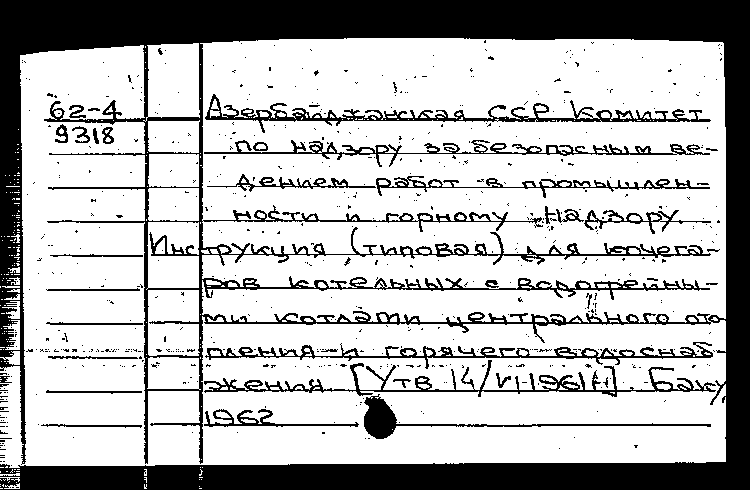 62-4
9318
Азербайджанская ССР Комитет
по надзору за безопасным ве-
дением работ в промышлен-
ности и горному надзору.
Инструкция (типовая) для кочега-
ров котельных с водогрейны-
ми котлами центрального ото-
пления и горячего водоснаб-
жения [Утв. 14/VI-1961 г.]. Баку
1962